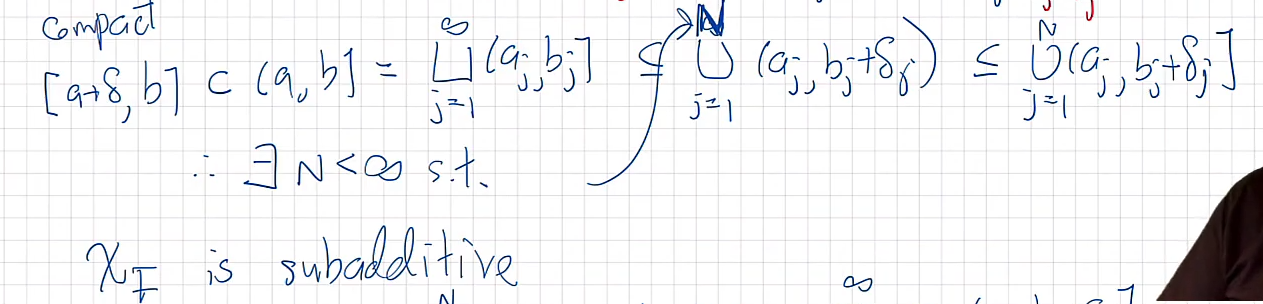 compact
[a+δ, b] ⊂ (a, b] = ⊔_{j=1}^{∞} (a_j, b_j] ⊆ ∪_{j=1}^{N} (a_j, b_j+δ_j) ⊆ ∪_{j=1}^{N} (a_j, b_j+δ_j]
∴ ∃ N < ∞ s.t.
χ_F is subadditive
N ∞